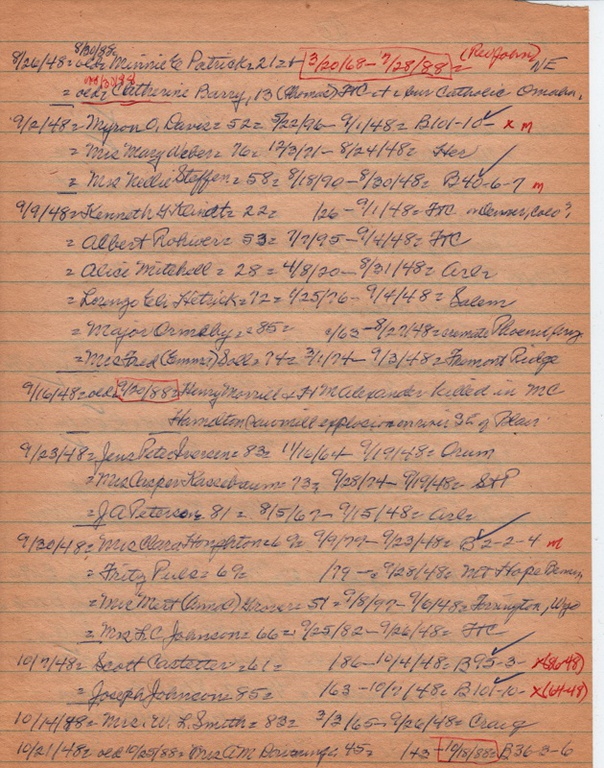 8/30/88
8/26/48 = old = Minnie E Patrick = 21 = 3/20/68 - 7/28/88 = (Red John) NE
= old = Catherine Barry, 13 (Thomas) FtC at Catholic Omaha,
9/2/48 = Myron O, Davis = 52 = 5/22/96 - 9/1/48 = B101-10- x m
= Mrs Mary Weber = 76 = 12/3/71 - 8/24/48 = Her
= Mrs Nellie Steffen = 58 = 8/18/90 - 8/30/48 = B40-6-7 m
9/9/48 = Kenneth = 22 = /26 - 9/1/48 = FtC in Denver, Colo?,
= Albert Rohwer = 53 = 7/7/95 - 9/4/48 = FtC
= Alice Mitchell = 28 = 4/8/20 - 8/31/48 = Arlr
= Lorenzo Eli Hetrick = 72 = 4/25/76 - 9/4/48 = Salem
= Major Ormsby, = 85 = /63 - 8/27/48 = cremate Phoenix Ariz
= Mrs Fred (Emma) Soll = 74 = 3/1/74 - 9/3/48 = Fremont Ridge
9/16/48 = old = 9/20/88 = Henry Morrill & H M Alexander killed in MC
Hamilton sawmill explosion on river SE of Blair
9/23/48 = Jens Peter Iversen = 83 = 11/16/64 - 9/19/48 = Orum
= Mrs Casper Kassebaum = 73 = 9/28/74 - 9/19/48 = StP
= J A Peterson = 81 = 8/5/67 - 9/15/48 = Arlr
9/30/48 = Mrs Clara Houghton = 69 = 9/9/79 - 9/23/48 = B2-2-4 m
= Fritz Puls = 69 = /79 - = 9/28/48 = Mt Hope
= Mrs Mert (Annie) Grover = 51 = 9/8/97 - 9/6/48 = Torrington, Wyo
= Mrs L C Johnson = 66 = 9/25/82 - 9/26/48 = FtC
10/7/48 = Scott Castetter = 61 = /86 - 10/4/48 = B95-3- x(86-48)
= Joseph Johnson = 85 = /63 - 10/7/48 = B101-10- x(64-48)
10/14/48 = Mrs. W. L. Smith = 83 = 3/3/65 - 9/26/48 = Craig
10/21/48 = old 10/25/88 = Mrs A M = 45 = /43 - 10/8/88 = B36-3-6